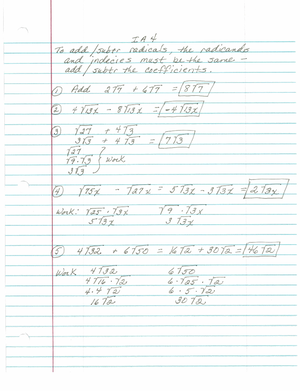 IA4
To add/subtr radicals, the radicands
and indecies must be the same -
add/subtr the coefficients.
① Add 2√7 + 6√7 = 8√7
② 4√13x - 8√13x = -4√13x
③ √27 + 4√3
3√3 + 4√3 = 7√3
√27
√9·√3 } Work
3√3
④ √75x - √27x = 5√3x - 3√3x = 2√3x
Work: √25·√3x √9·√3x
5√3x 3√3x
⑤ 4√32 + 6√50 = 16√2 + 30√2 = 46√2
Work 4√32 6√50
4√16·√2 6·√25·√2
4·4√2 6·5·√2
16√2 30√2